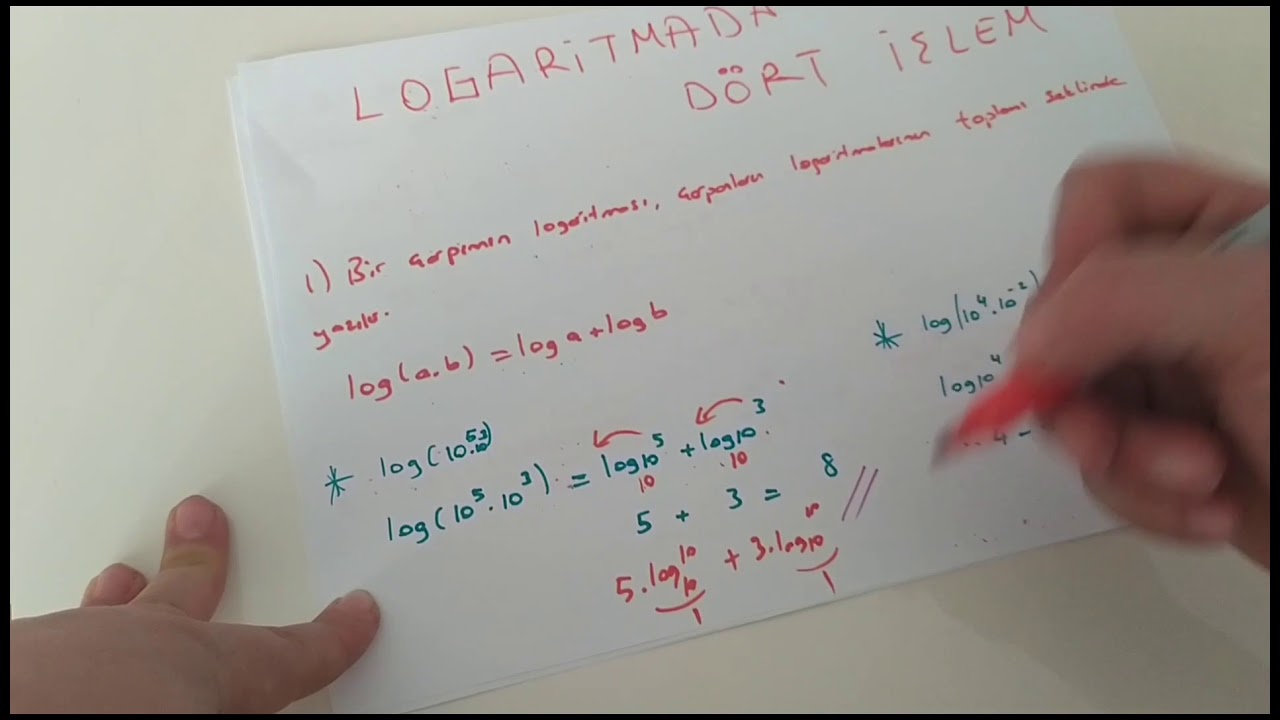 LOGARİTMADA
DÖRT İŞLEM
1) Bir çarpımın logaritması, çarpanların logaritmalarının toplamı şeklinde
yazılır.
log(a.b) = log a + log b
* log(10⁵.10³)
log(10⁵.10³) = log10⁵ + log10³
10 10
5 + 3 = 8 //
5.log₁₀10 + 3.log₁₀10
1 1
* log(10⁴.10⁻²)
log10⁴
4 -